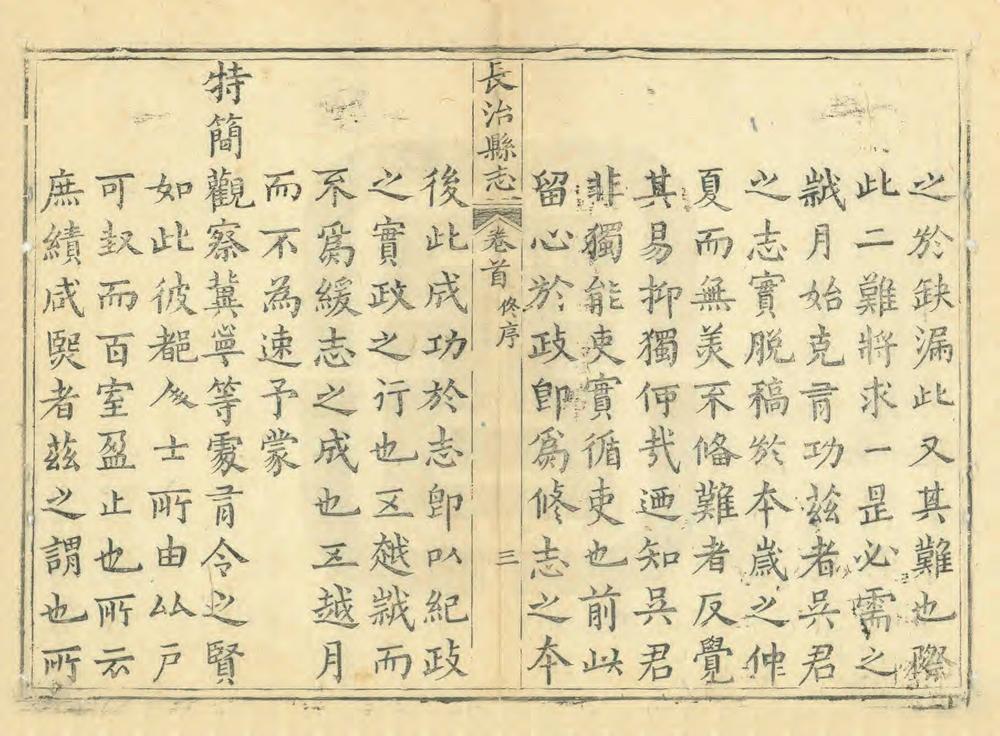 之於缺漏此又其難也際
此二難將求一昰必需之
朞月始克有功茲者吳君
之志實脫稿於本歲之仲
夏而無美不備難者反覺
其易抑獨何哉廼知吳君
非獨能吏實循吏也前此
留心於政卽爲修志之本
長治縣志 卷首 修序 三
後此成功於志卽以紀政
之實政之行也五越朞而
不爲緩志之成也五越月
而不為速予蒙
特簡觀察冀寧等處有令之賢
如此彼都人士所由比戶
可封而百室盈止也所云
庶績咸熙者茲之謂也所